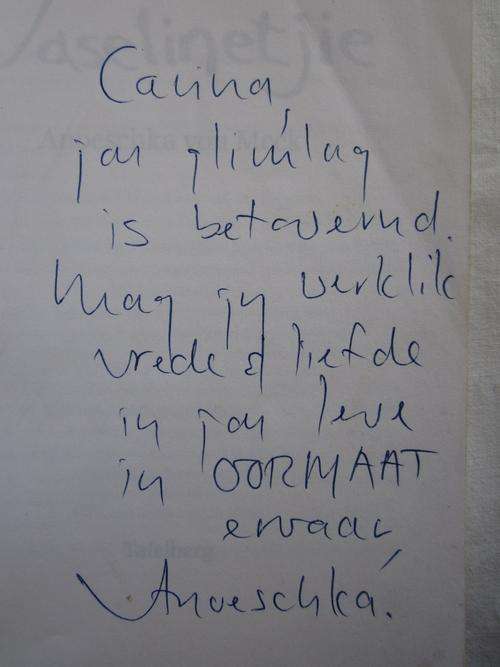 Vaselinetjie
Anoeschka von Meck
Carina,
jou glimlag
is betowerend.
Mag jy werklik
vrede & liefde
in jou lewe
in OORMAAT
ervaar
Tafelberg
Anoeschka.